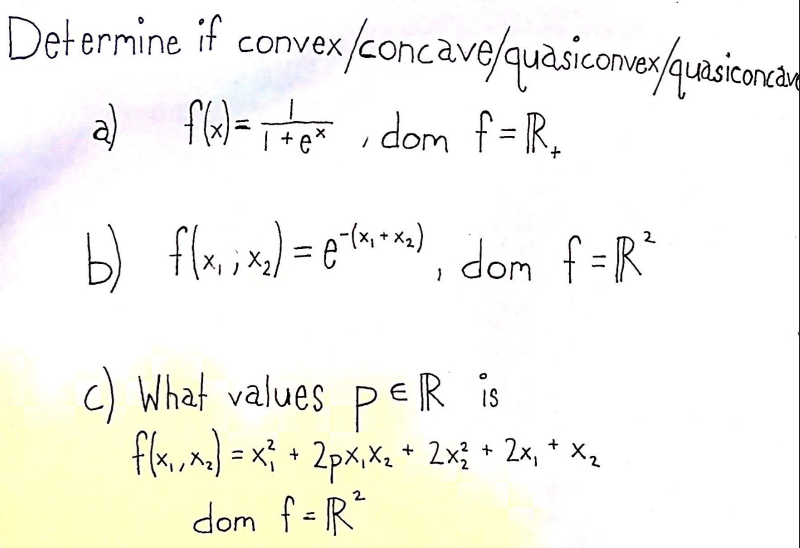 Determine if convex/concave/quasiconvex/quasiconcav
a) f(x) = 1/(1 + e^x) , dom f = ℝ₊
b) f(x₁ ; x₂) = e^(-(x₁ + x₂)) , dom f = ℝ²
c) What values p ∈ ℝ is
f(x₁, x₂) = x₁² + 2px₁x₂ + 2x₂² + 2x₁ + x₂
dom f = ℝ²